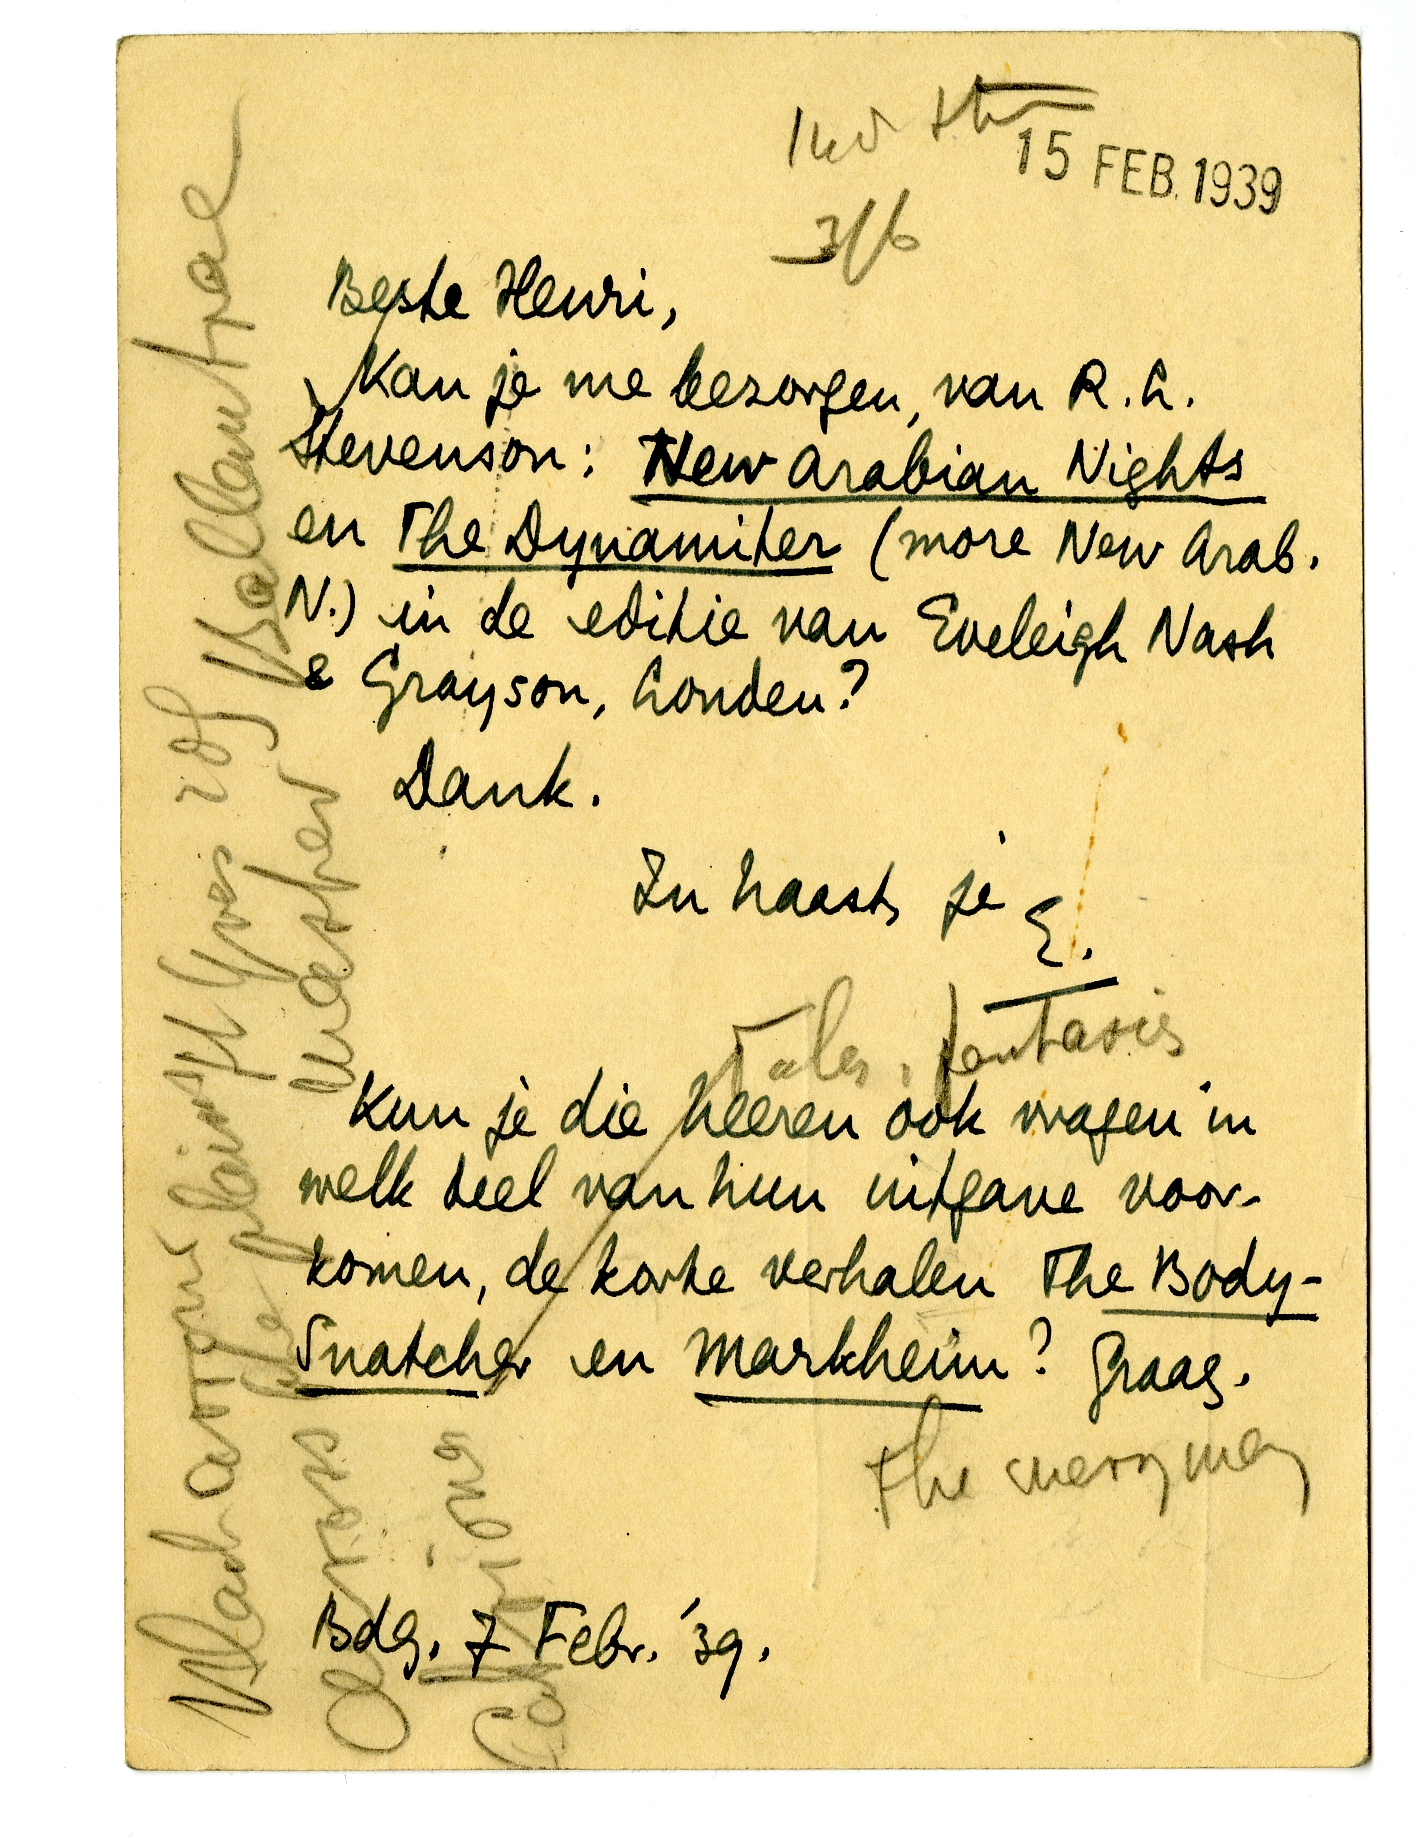 15 FEB. 1939
3/6
Beste Henri,
Kan je me bezorgen, van R.L.
Stevenson: New Arabian Nights
en The Dynamiter (more New Arab.
N.) in de editie van Eveleigh Nash
& Grayson, Londen?
Dank.
In haast, je E.
Tales, fantasies
Kun je die heeren ook vragen in
welk deel van hun uitgave voor-
komen, de korte verhalen The Body-
Snatcher en Markheim? Graag.
The merry men
Bdg. 7 Febr. '39.
Ballantrae
across the plains